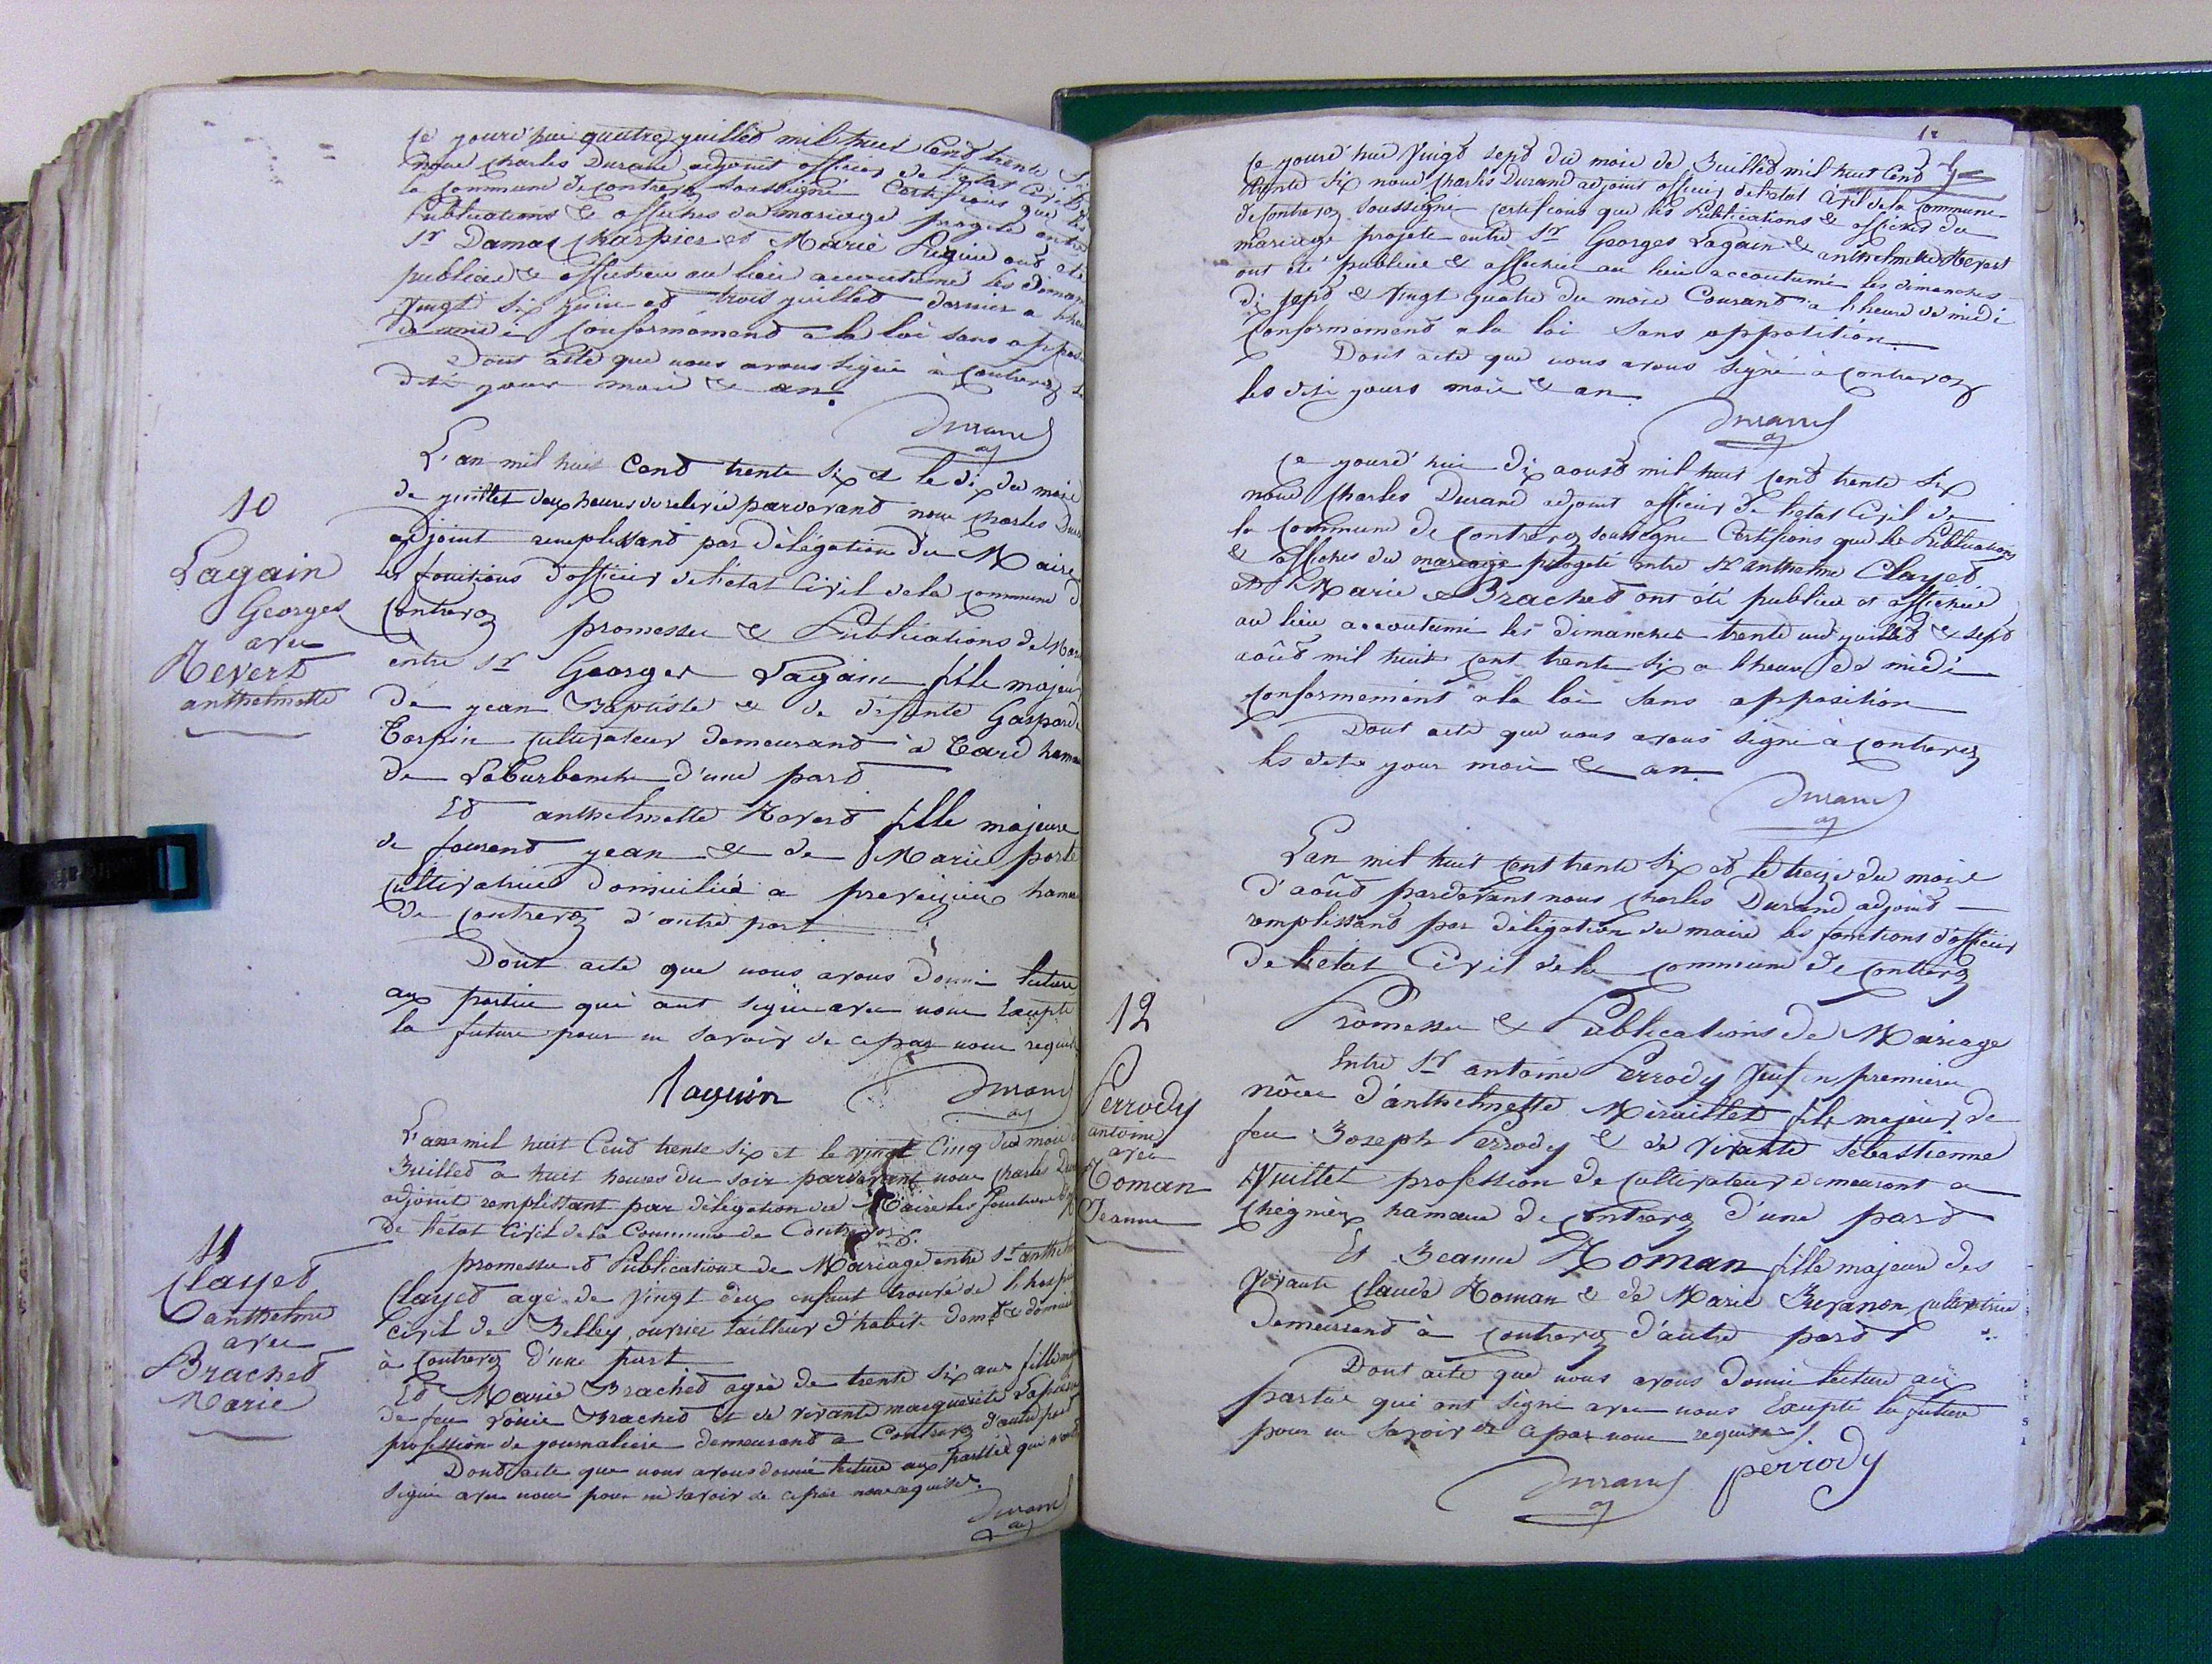 Ce yourd'hui quattre juilled mil huit Cend trente
nous charles Durand adjoint officier de l'etat Civil
la commune de contrevoz soussigné Certifions que les
Publications & affiches du mariage progeté entre
Sr Damas Charpier et Marie ont été
publiee & affichee au lieu accoutumé les
Vingt six juin et trois juilled dernier a
de midi Conformémend a la loi sans
Dont acte que nous avons signé à Contrevoz
dits jour mois & an.
Durand
adj
10
Lagain
Georges
avec
Revert
anthelmette
L'an mil huit Cend trente six et le dix du mois
de juillet deux heures de relevée pardevand nous charles
adjoint remplissand par délégation du Maire
les fonctions d'officier de l'etat Civil de la commune
Contrevoz promesse & Publications de
entre Sr Georges Lagain fils majeur
de jean Baptiste & de défunte Gasparde
cultivateur demeurand à
de Laburbanche d'une pard
Ed anthelmette Reverd fille majeure
de jean & de Marie
cultivatrice domiciliée a preveizieu
de contrevoz d'autre part
Dont acte que nous avons donné lecture
aux parties qui ont signé avec nous Excepté
la future pour ne savoir de ce par nous
lagain Durand
adj
11
Clayed
anthelme
avec
Brached
Marie
L'an mil huit Cend trente six et le vingt Cinq du mois
Juilled a huit heures du soir pardevant nous Charles
adjoint remplissant par délégation du Maire les fonctions
de l'état Civil de la Commune de Contrevoz.
promesse et Publications de Mariage entre Sr
Clayed agé de vingt deux enfant trouvé de
Civil de Belley, ouvrier tailleur d'habit
à Contrevoz d'une part
Ed Marie Brached agée de trente six ans fille
de feu Brached et de vivante marguerite
profession de journaliere demeurand a Contrevoz d'autre part
Dont acte que nous avons donné lecture aux parties qui
signé avec nous pour ne savoir de ce par nous requises.
Durand
adj
Ce yourd'hui Vingd sepd du mois de Juilled mil huit Cend
trente six nous Charles Durand adjoint officier de l'etat Civil de la Commune
de Contrevoz soussigné certifions que les Publications & affiches du
mariage projeté entre Sr Georges Lagain & anthelmette Revert
ont été publiée & affichée au lieu accoutumé les dimanches
dix sepd & vingt quatre du mois Courand a l'heure de midi
Conformémend a la loi sans oppotition.
Dont acte que nous avons signé à Contrevoz
les dits jours mois & an
Durand
adj
Ce yourd'hui dix aousd mil huit cend trente six
nous Charles Durand adjoint officier de l'etat Civil de
la Commune de Contrevoz soussigné Certifions que les Publications
& affiches du mariage progeté entre Sr anthelme Clayed
et Marie Brached ont été publiee et affichée
au lieu accoutumé les dimanches trente un juilled & sepd
août mil huit cent trente six a lheure de midi
conformement a la loi sans opposition
Dont acte que nous avons signé à contrevoz
les dits jour mois & an.
Durand
adj
L'an mil huit cent trente six et le treize du mois
d'août pardevant nous Charles Durand adjoint
remplissand par délégation du maire les fonctions d'officier
de l'etat Civil de la commune de contrevoz
12
Perrody
antoine
avec
Roman
Jeanne
Promesse & Publications de Mariage
Entre Sr antoine Perrody veuf en premiere
nôce d'anthelmette Miraillet fils majeur de
feu Joseph Perrody & de vivante sebastienne
Vuillet profession de cultivateur demeurant a
Cheignieu hamau de contrevoz d'une pard
Et Jeanne Roman fille majeure des
vivants Claude Roman & de Marie cultivatrice
demeurand à contrevoz d'autre pard
Dont acte que nous avons donné lecture aux
parties qui ont signé avec nous Excepté la future
pour ne savoir de ce par nous requises
Durand perrody
adj